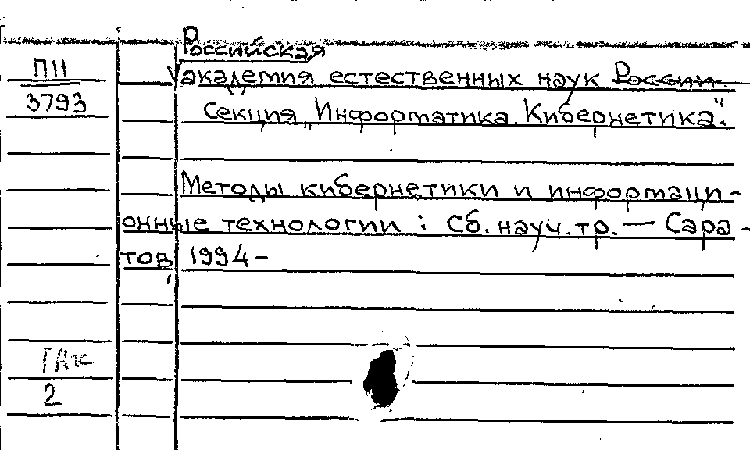 Российская
П11 академия естественных наук России.
3793 Секция „Информатика. Кибернетика".
Методы кибернетики и информаци-
онные технологии : Сб. науч. тр. — Сара-
тов, 1994 -
2